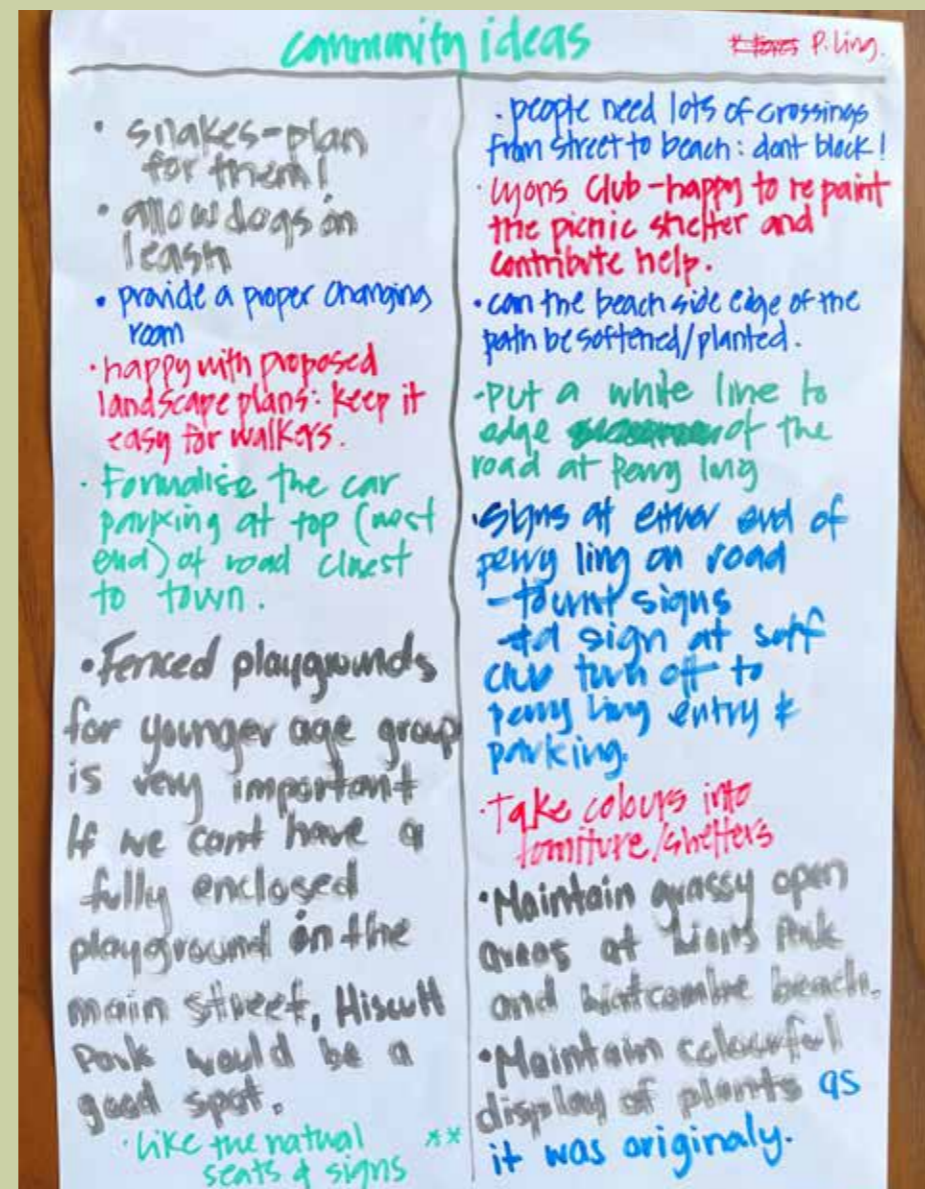 community ideas
P. Ling.
• snakes - plan
for them!
• allow dogs on
leash
• provide a proper changing
room
• happy with proposed
landscape plans: keep it
easy for walkers.
• Formalise the car
parking at top (west
end) of road closest
to town.
• Fenced playgrounds
for younger age group
is very important
If we cant have a
fully enclosed
playground in the
main street, Hiscutt
Park would be a
good spot.
• like the natural **
seats & signs
• people need lots of crossings
from street to beach: dont block!
• Lyons Club - happy to repaint
the picnic shelter and
contribute help.
• can the beach side edge of the
path be softened/planted.
- Put a white line to
edge of the
road at Perry ling
• Signs at either end of
perry ling on road
- tourist signs
sign at surf
club turn off to
perry ling entry &
parking.
• Take colours into
furniture/shelters
• Maintain grassy open
areas at Lions Park
and Watcombe beach.
• Maintain colourful
display of plants as
it was originaly.